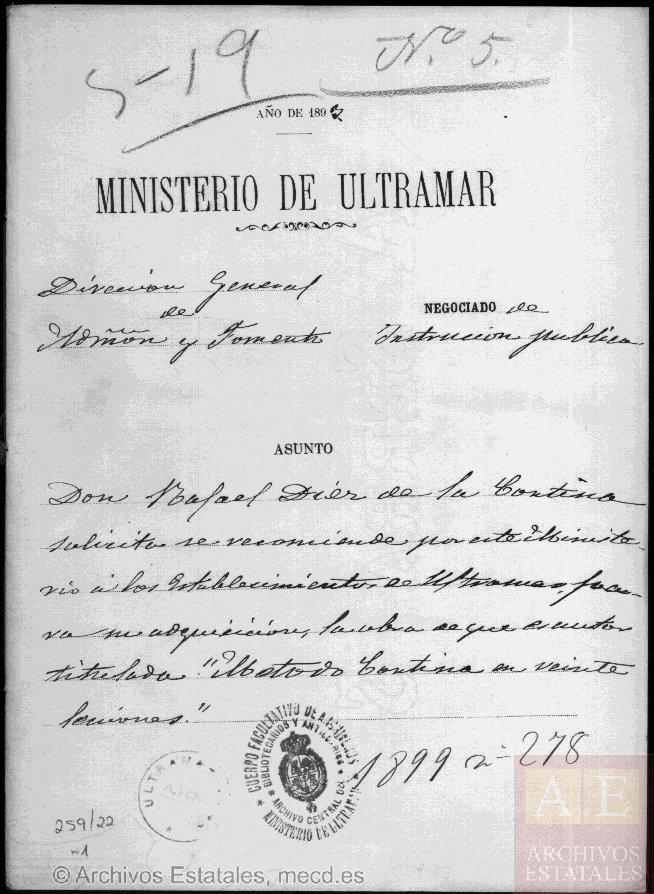 5-19
Nº 5.
AÑO DE 1892
MINISTERIO DE ULTRAMAR
Dirección General
de
Admón y Fomento
NEGOCIADO de
Instrucion publica
ASUNTO
Don Rafael Diez de la Cortina
solicita se recomiende por este Ministe-
rio á los Establecimientos de Ultramar, para
su adquisición, la obra de que es autor
titulada "Metodo Cortina en veinte
lecciones."
CUERPO FACULTATIVO DE ARCHIVEROS
BIBLIOTECARIOS Y ANTICUARIOS
ARCHIVO CENTRAL DEL
MINISTERIO DE ULTRAMAR
ULTRAMAR
1899 nº 278
259/22
n1
AE
ARCHIVOS
ESTATALES
© Archivos Estatales, mecd.es